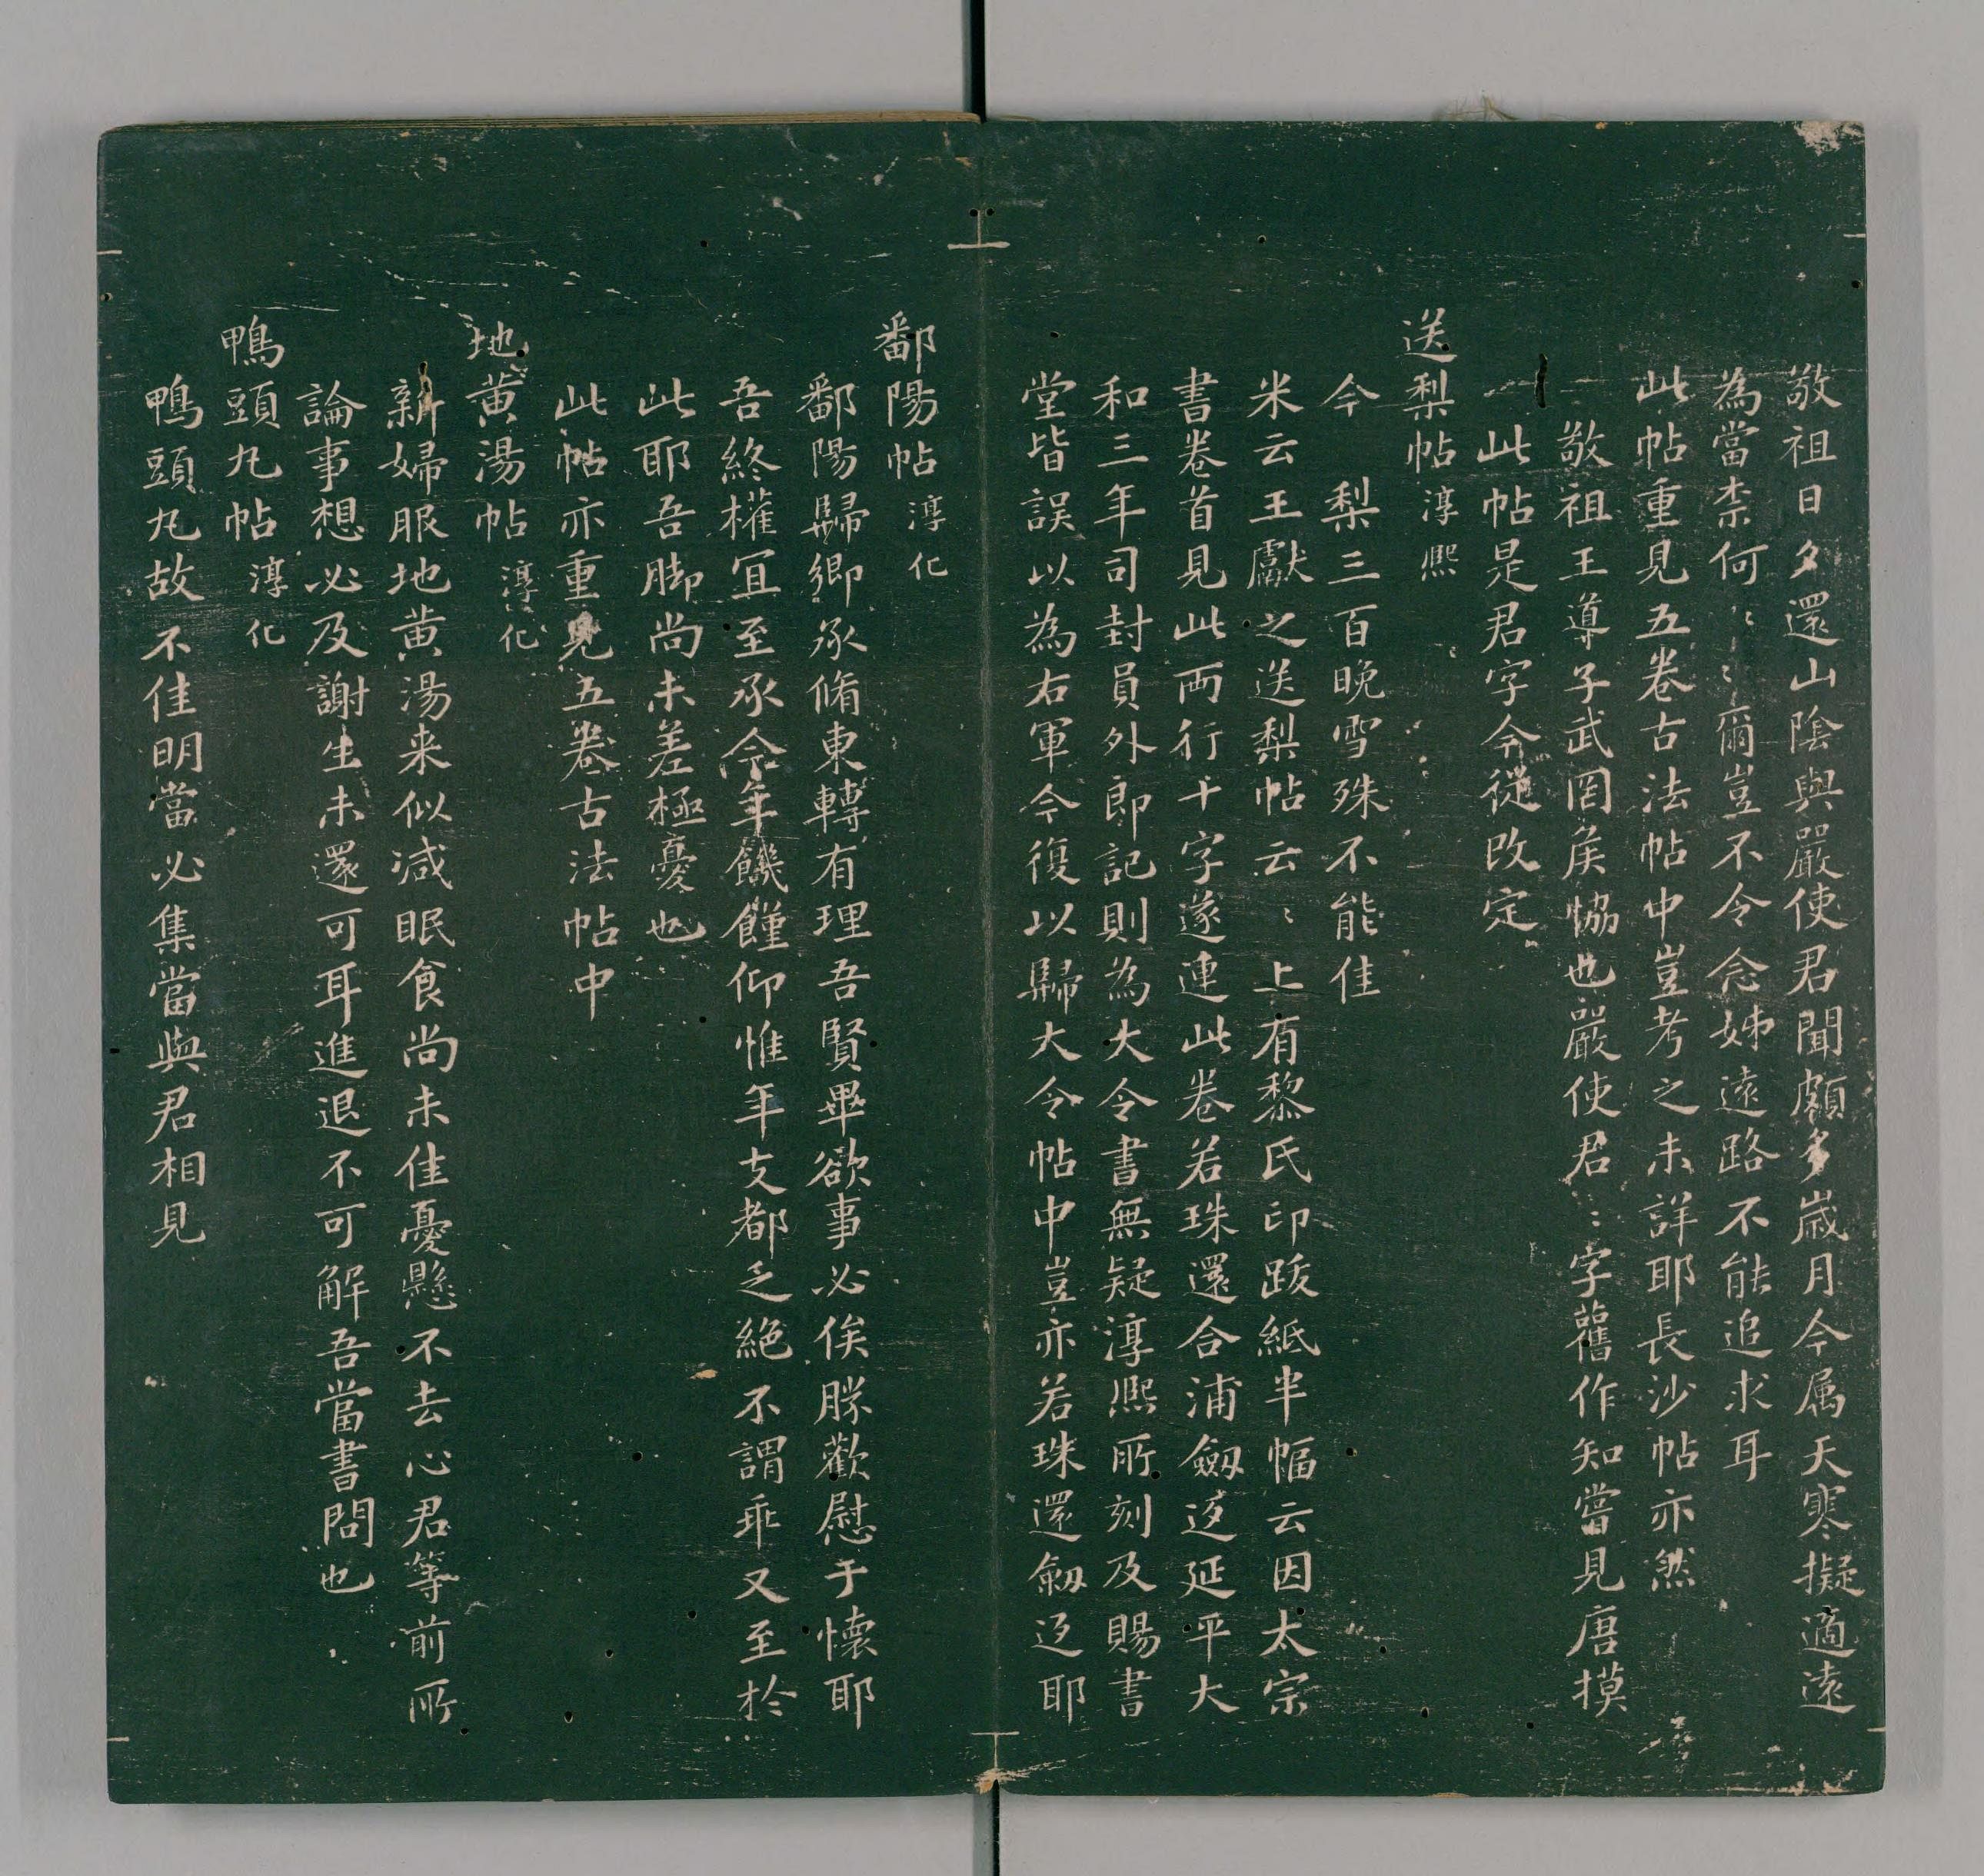 敬祖日夕還山陰與嚴使君聞頗多歲月今属天寒擬適遠
為當柰何〻〻爾豈不令念姊遠路不能追求耳
此帖重見五卷古法帖中豈考之未詳耶長沙帖亦然
敬祖王導子武罔矦恊也嚴使君〻字舊作知嘗見唐摸
此帖是君字今從改定
送梨帖淳熙
今　梨三百晚雪殊不能佳
米云王獻之送梨帖云〻上有黎氏印跋紙半幅云因太宗
書卷首見此兩行十字遂連此卷若珠還合浦劔迓延平大
和三年司封員外郎記則為大令書無疑淳熙所刻及賜書
堂皆誤以為右軍今復以歸大令帖中豈亦若珠還劔迓耶
鄱陽帖淳化
鄱陽歸鄉承脩東轉有理吾賢畢欲事必俟勝歡慰于懷耶
吾終權冝至承今年饑饉仰惟年支都乏絕不謂乖又至於
此耶吾脚尚未差極憂也
此帖亦重見五卷古法帖中
地黄湯帖淳化
新婦服地黄湯来似减眠食尚未佳憂懸不去心君等前所
論事想必及謝生未還可耳進退不可解吾當書問也
鴨頭丸帖淳化
鴨頭丸故不佳明當必集當與君相見